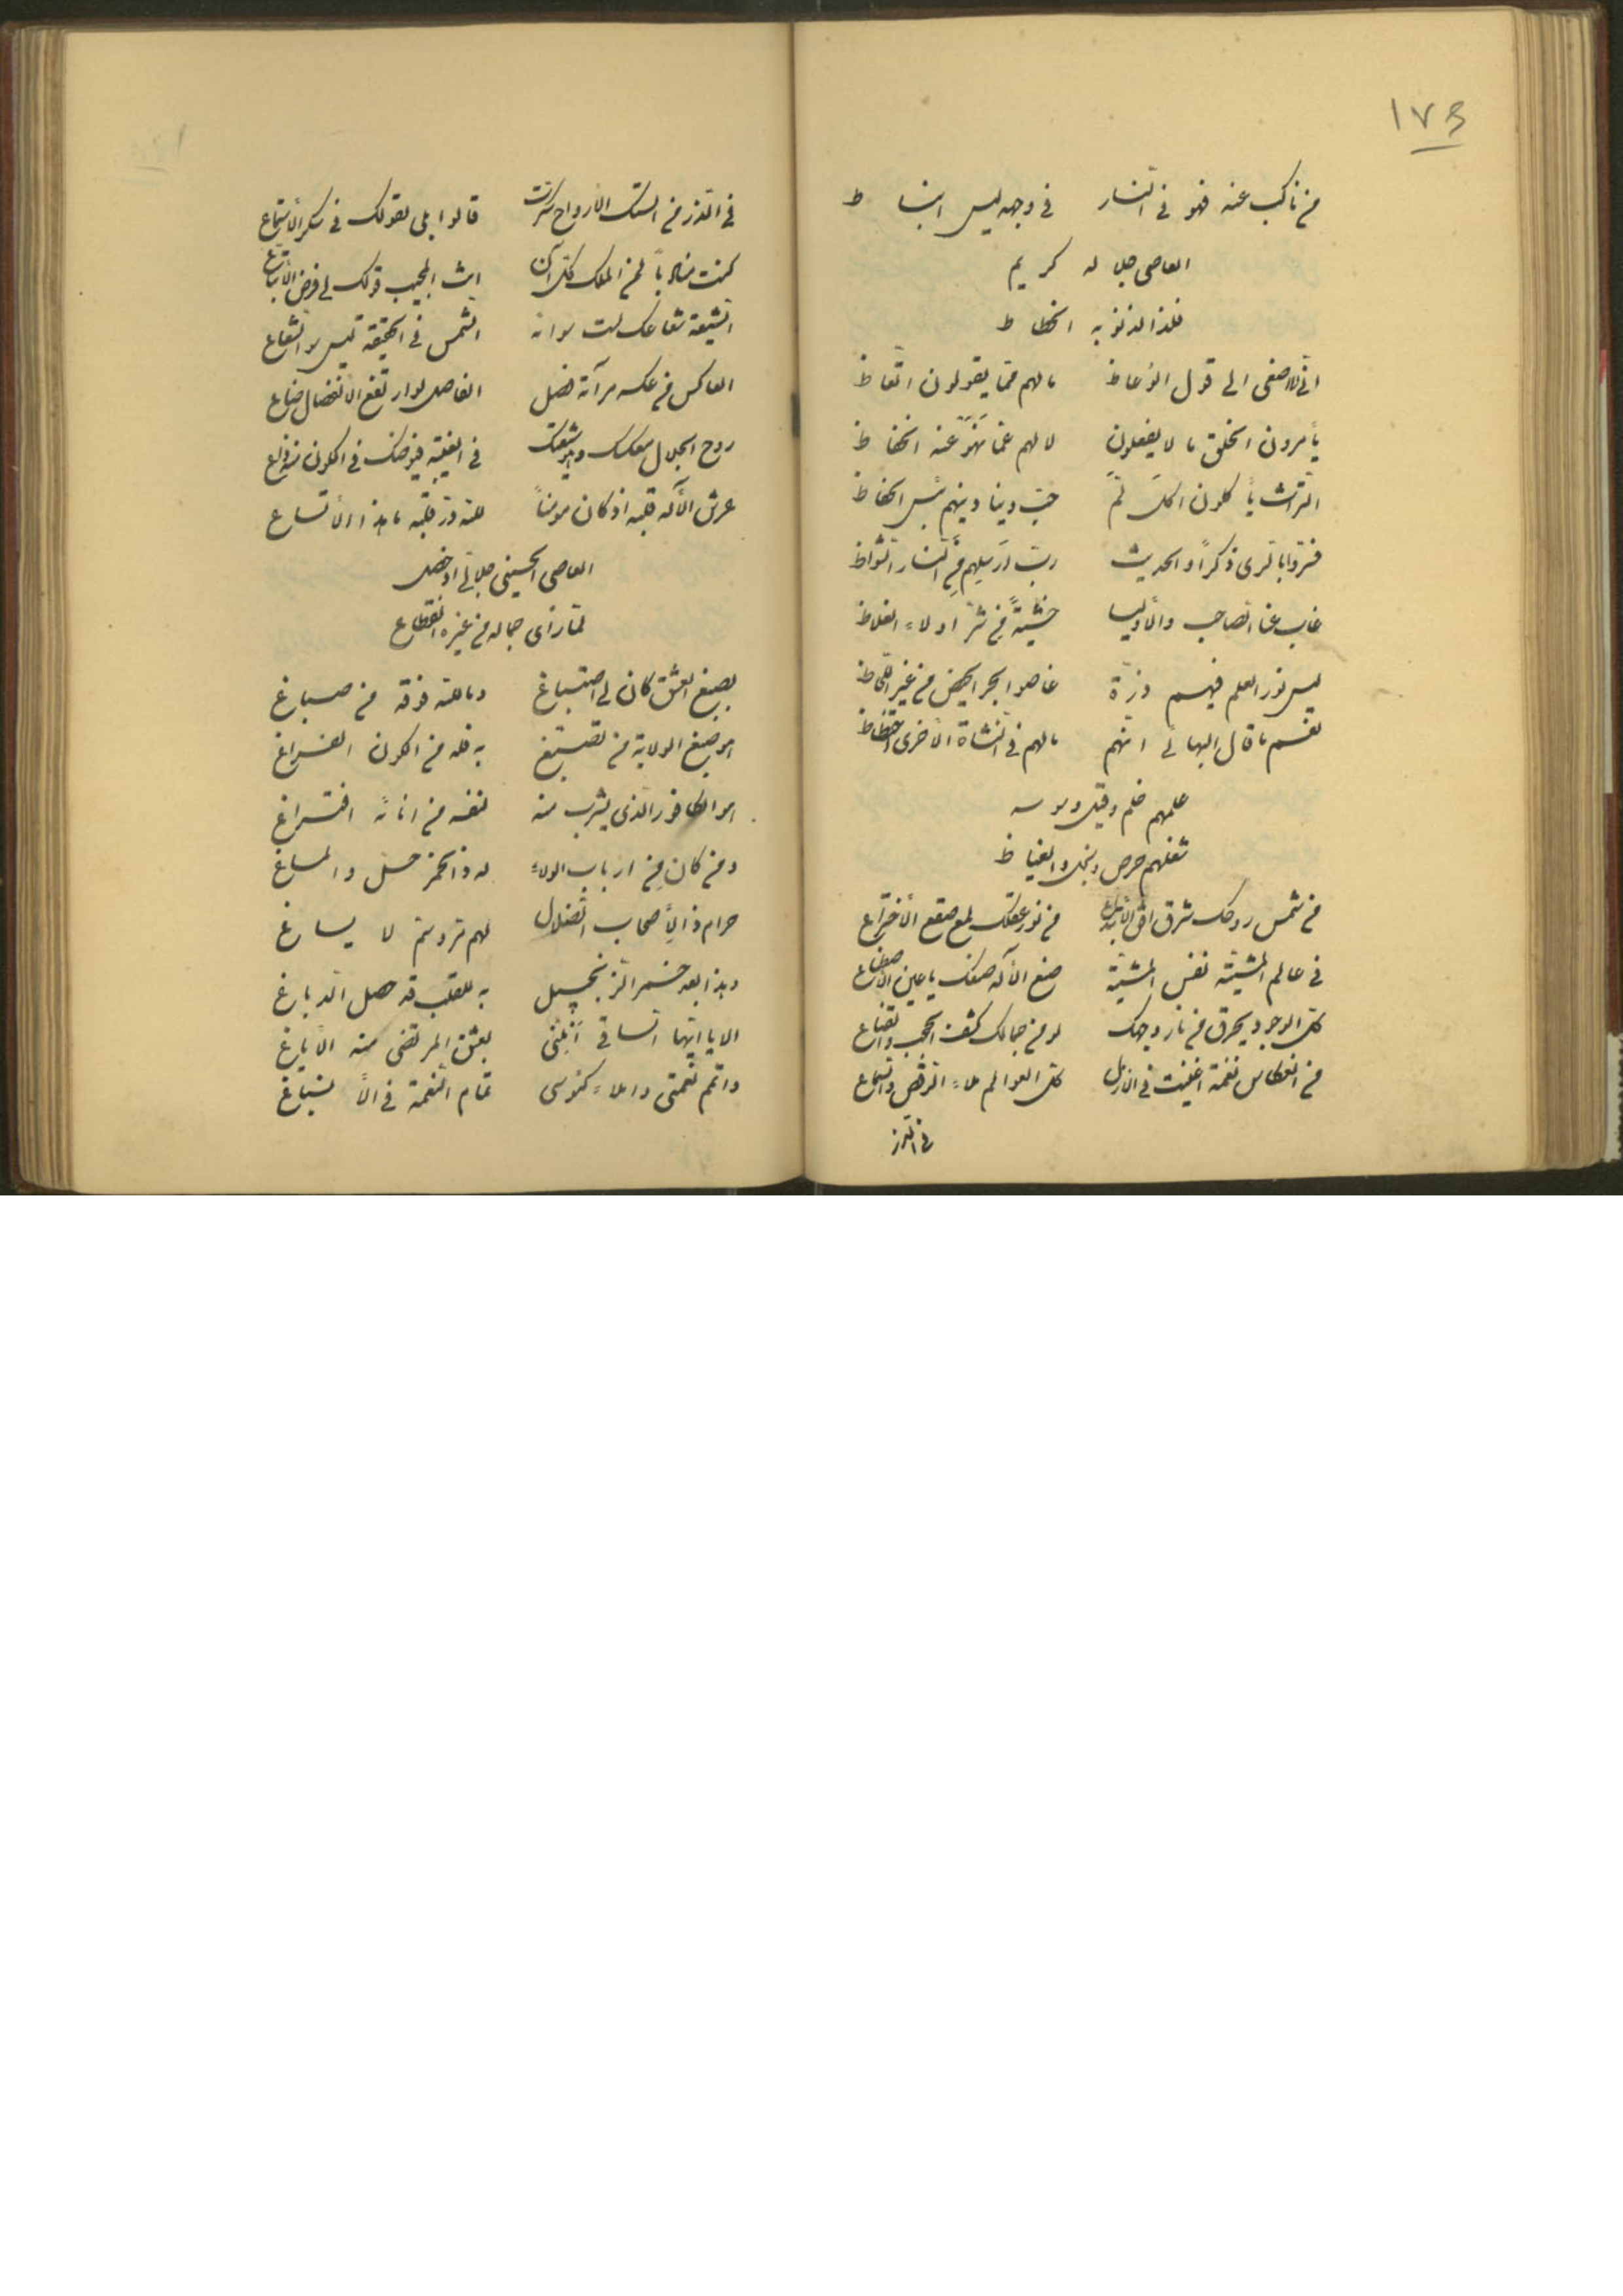 ١٧٥
من ناكب عنه فهو في النار في وجهه ليس انبساط
العاصي جلاله كريم
فلذا لذنوبه انحطاط
انّي لاصغى الى قول الوعاظ ما لهم ممّا يقولون اتّعاظ
يأمرون الخلق ما لا يفعلون لا لهم عمّا نهوا عنه انحفاظ
التراث يأكلون اكل لمّ حبّ دنيا دينهم بئس الحفاظ
ربّ ارسلهم في النار الشواظ
غاب عنّا الصاحب والأوليا خشيةً من شرّ اولاء الغلاظ
ليس نور العلم فيهم ذرّة غاضوا بحر الحيض من غير
نعم ما قال البهائي انّهم ما لهم في النشأة الاخرى احتظاظ
علمهم ظلم وقيل ووسوسه
شغلهم حرص وبخل والغياظ
من شمس روحك شرق افق الابتداع من نور عقلك لمع صقع الأختراع
في عالم المشيّة نفس المشيّة صنع الأله صنعك يا عين الاصطناع
كلّ الوجود يحرق من نار وجهك لو من جمالك كشف الحجب والقناع
من انعكاس نغمة اغنيت في الازل كلّ العوالم ملاء الرقص والسماع
في الذر
في الذر من الست الارواح سكرت قالوا بلى بقولك في سكر الأستماع
كنت منادياً لمن الملك كلّ آن انت المجيب قولك لي فرض الأتباع
الشيعة شعاعك ليت سوائه الشمس في الحقيقة ليس سوا الشعاع
العاكس من عكسه مرآته فصل الفاصل لو ارتفع الانفصال ضاع
روح الجلال معك في الغيبة فيوضك في الكون
عرش الأله قلبه اذ كان مومناً لله درّ قلبه ما هذا الأتساع
العاصي الحسيني جلالي
لمّا رأى جماله من غيره انقطاع
بصبغ العشق كان لي اصتباغ وما لله فوقه من صباغ
هو صبغ الولاية من تصبّغ به فله من الكون الفراغ
هو الكافور الذي يشرب منه لنفسه من انائه افتراغ
ومن كان من ارباب الولاء له ذا الخمر حلّ والمساغ
حرام ذا لأصحاب الضلال لهم لا يساغ
وهذا بعد خمر الزنجبيل به للقلب قد حصل الدباغ
الا يا ايّها الساقي انلني بعشق المرتضى منه الأياغ
واتمم نعمتي واملاء كئوسي تمام النعمة في الأسباغ